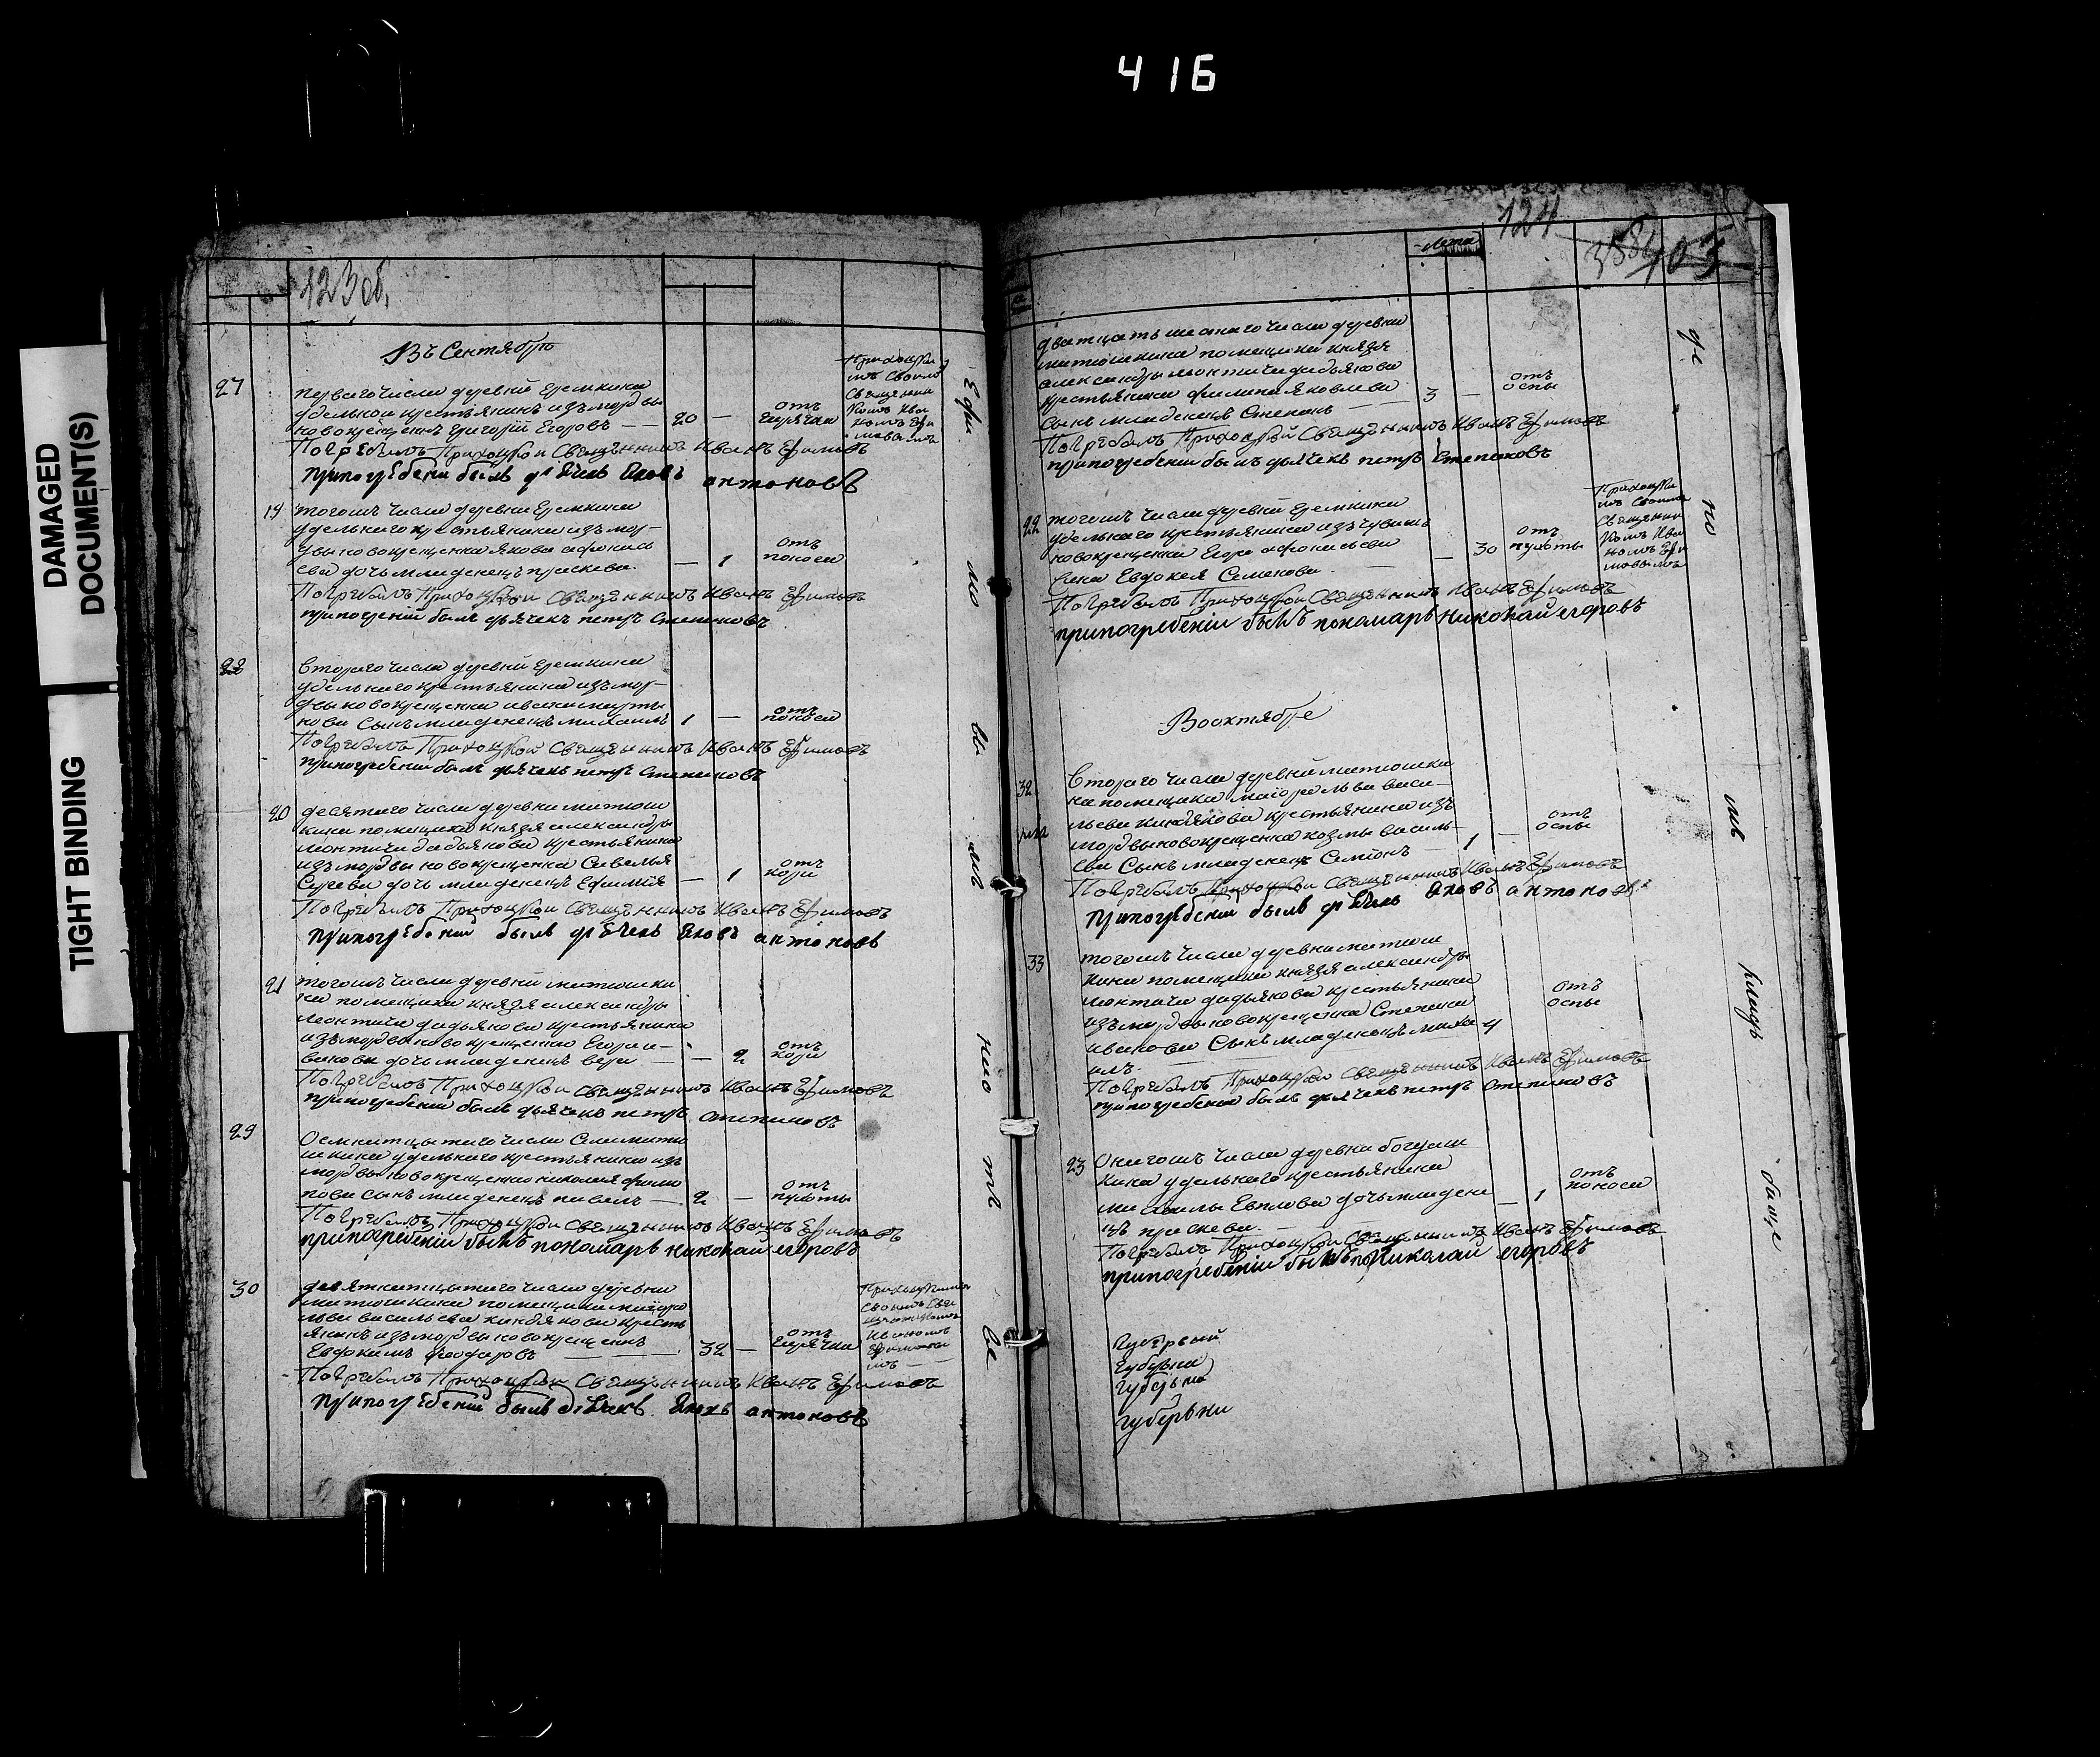 416
DAMAGED
DOCUMENT(S)
TIGHT BINDING
123 об.
Въ Сентябрѣ
27
перваго числа деревни Еремкина
удельной крестьянинъ изъ мордвы
новокрещенъ Григорій Егоровъ — 20 —
отъ
горячки
Приходски
мъ своимъ
Священни
комъ Ива
номъ Ефи
мовымъ
Погребалъ Приходской Священникъ Иванъ Ефимовъ
при погребении былъ дьячекъ Яковъ антоновъ
19
тогожъ числа деревни Еремкина
удельнаго крестьянина изъ мор-
двы новокрещена Якова афонась
ева дочь младенецъ праскева — 1
отъ
поноса
Погребалъ Приходской Священникъ Иванъ Ефимовъ
при погребеній былъ дьячекъ петръ Степановъ
28
втораго числа деревни Еремкина
удельнаго крестьянина изъ мор-
двы новокрещена ивана марты
нова сынъ младенецъ михаилъ 1 —
отъ
поноса
Погребалъ Приходской Священникъ Иванъ Ефимовъ
при погребении былъ дьячекъ петръ Степановъ
20
десятаго числа деревни митюш
кина помещика князя александры
леонтича дадьянова крестьянина
изъ мордвы новокрещена Савелья
Сергеева дочь младенецъ Ефимія — 1
отъ
кори
Погребалъ Приходской Священникъ Иванъ Ефимовъ
при погребении былъ дьячекъ Яковъ антоновъ
21
тогожъ числа деревни митюшки
на помещика князя александры
леонтича дадьянова крестьянина
изъ мордвы новокрещена Егора и-
ванова дочь младенецъ вера — 2
отъ
кори
Погребалъ Приходской Священникъ Иванъ Ефимовъ
при погребении былъ дьячекъ петръ Степановъ
29
Осмнатцатаго числа Села митю
шкина удельнаго крестьянина изъ
мордвы новокрещена николая филип
пова сынъ младенецъ павелъ — 2 —
отъ
пухоты
Погребалъ Приходской Священникъ Иванъ Ефимовъ
при погребеніи былъ пономарь николай егоровъ
30
девятнатцатаго числа деревни
митюшкина помещика маіора
льва васильева киндякова кресть
янинъ изъ мордвы новокрещенъ
Евдокимъ Феодоровъ — 32 —
отъ
горячки
Приходскимъ
своимъ Све
щенникомъ
Иваномъ
Ефимовы
мъ
Погребалъ Приходской Священникъ Иванъ Ефимовъ
при погребений былъ дьячекъ Яковъ антоновъ
Лета
124
403
дватцать шестаго числа деревни
митюшкина помещика князя
александры леонтича дадьянова
крестьянина филипа яковлева
сынъ младенецъ Степанъ — 3 —
отъ
оспы
Погребалъ Приходской Священникъ Иванъ Ефимовъ
при погребении былъ дьячекъ петръ Степановъ
22
тогожъ числа деревни Еремкина
удельнаго крестьянина изъ чувашъ
новокрещена Егора афонасьева
жена Евдокея Семенова — 30
отъ
пухоты
Приходски
мъ своимъ
Священни
комъ Ива
номъ Ефи
мовымъ
Погребалъ Приходской Священникъ Иванъ Ефимовъ
при погребеніи былъ пономарь николай егоровъ
Воохтябре
32
втораго числа деревни митюшки
на помещика маіора льва васи-
льева киндякова крестьянина изъ
мордвы новокрещена козмы василь-
ева Сынъ младенецъ Семіонъ — 1 —
отъ
оспы
Погребалъ Приходской Священникъ Иванъ Ефимовъ
при погребении былъ дьячекъ Яковъ антоновъ
33
тогожъ числа деревни митюш
кина помещика князя александры
леонтича дадьянова крестьянина
изъ мордвы новокрещена Степана
иванова Сынъ младенецъ миха 4
илъ
отъ
оспы
Погребалъ Приходской Священникъ Иванъ Ефимовъ
при погребении былъ дьячекъ петръ Степановъ
23
Онагожъ числа деревни богдаш
кина удельнаго крестьянина
михаилы Евплова дочь младене — 1
цъ праскева
отъ
поноса
Погребалъ Приходской Священникъ Иванъ Ефимовъ
при погребеніи былъ Николай егоровъ
Губерьни
губерьни